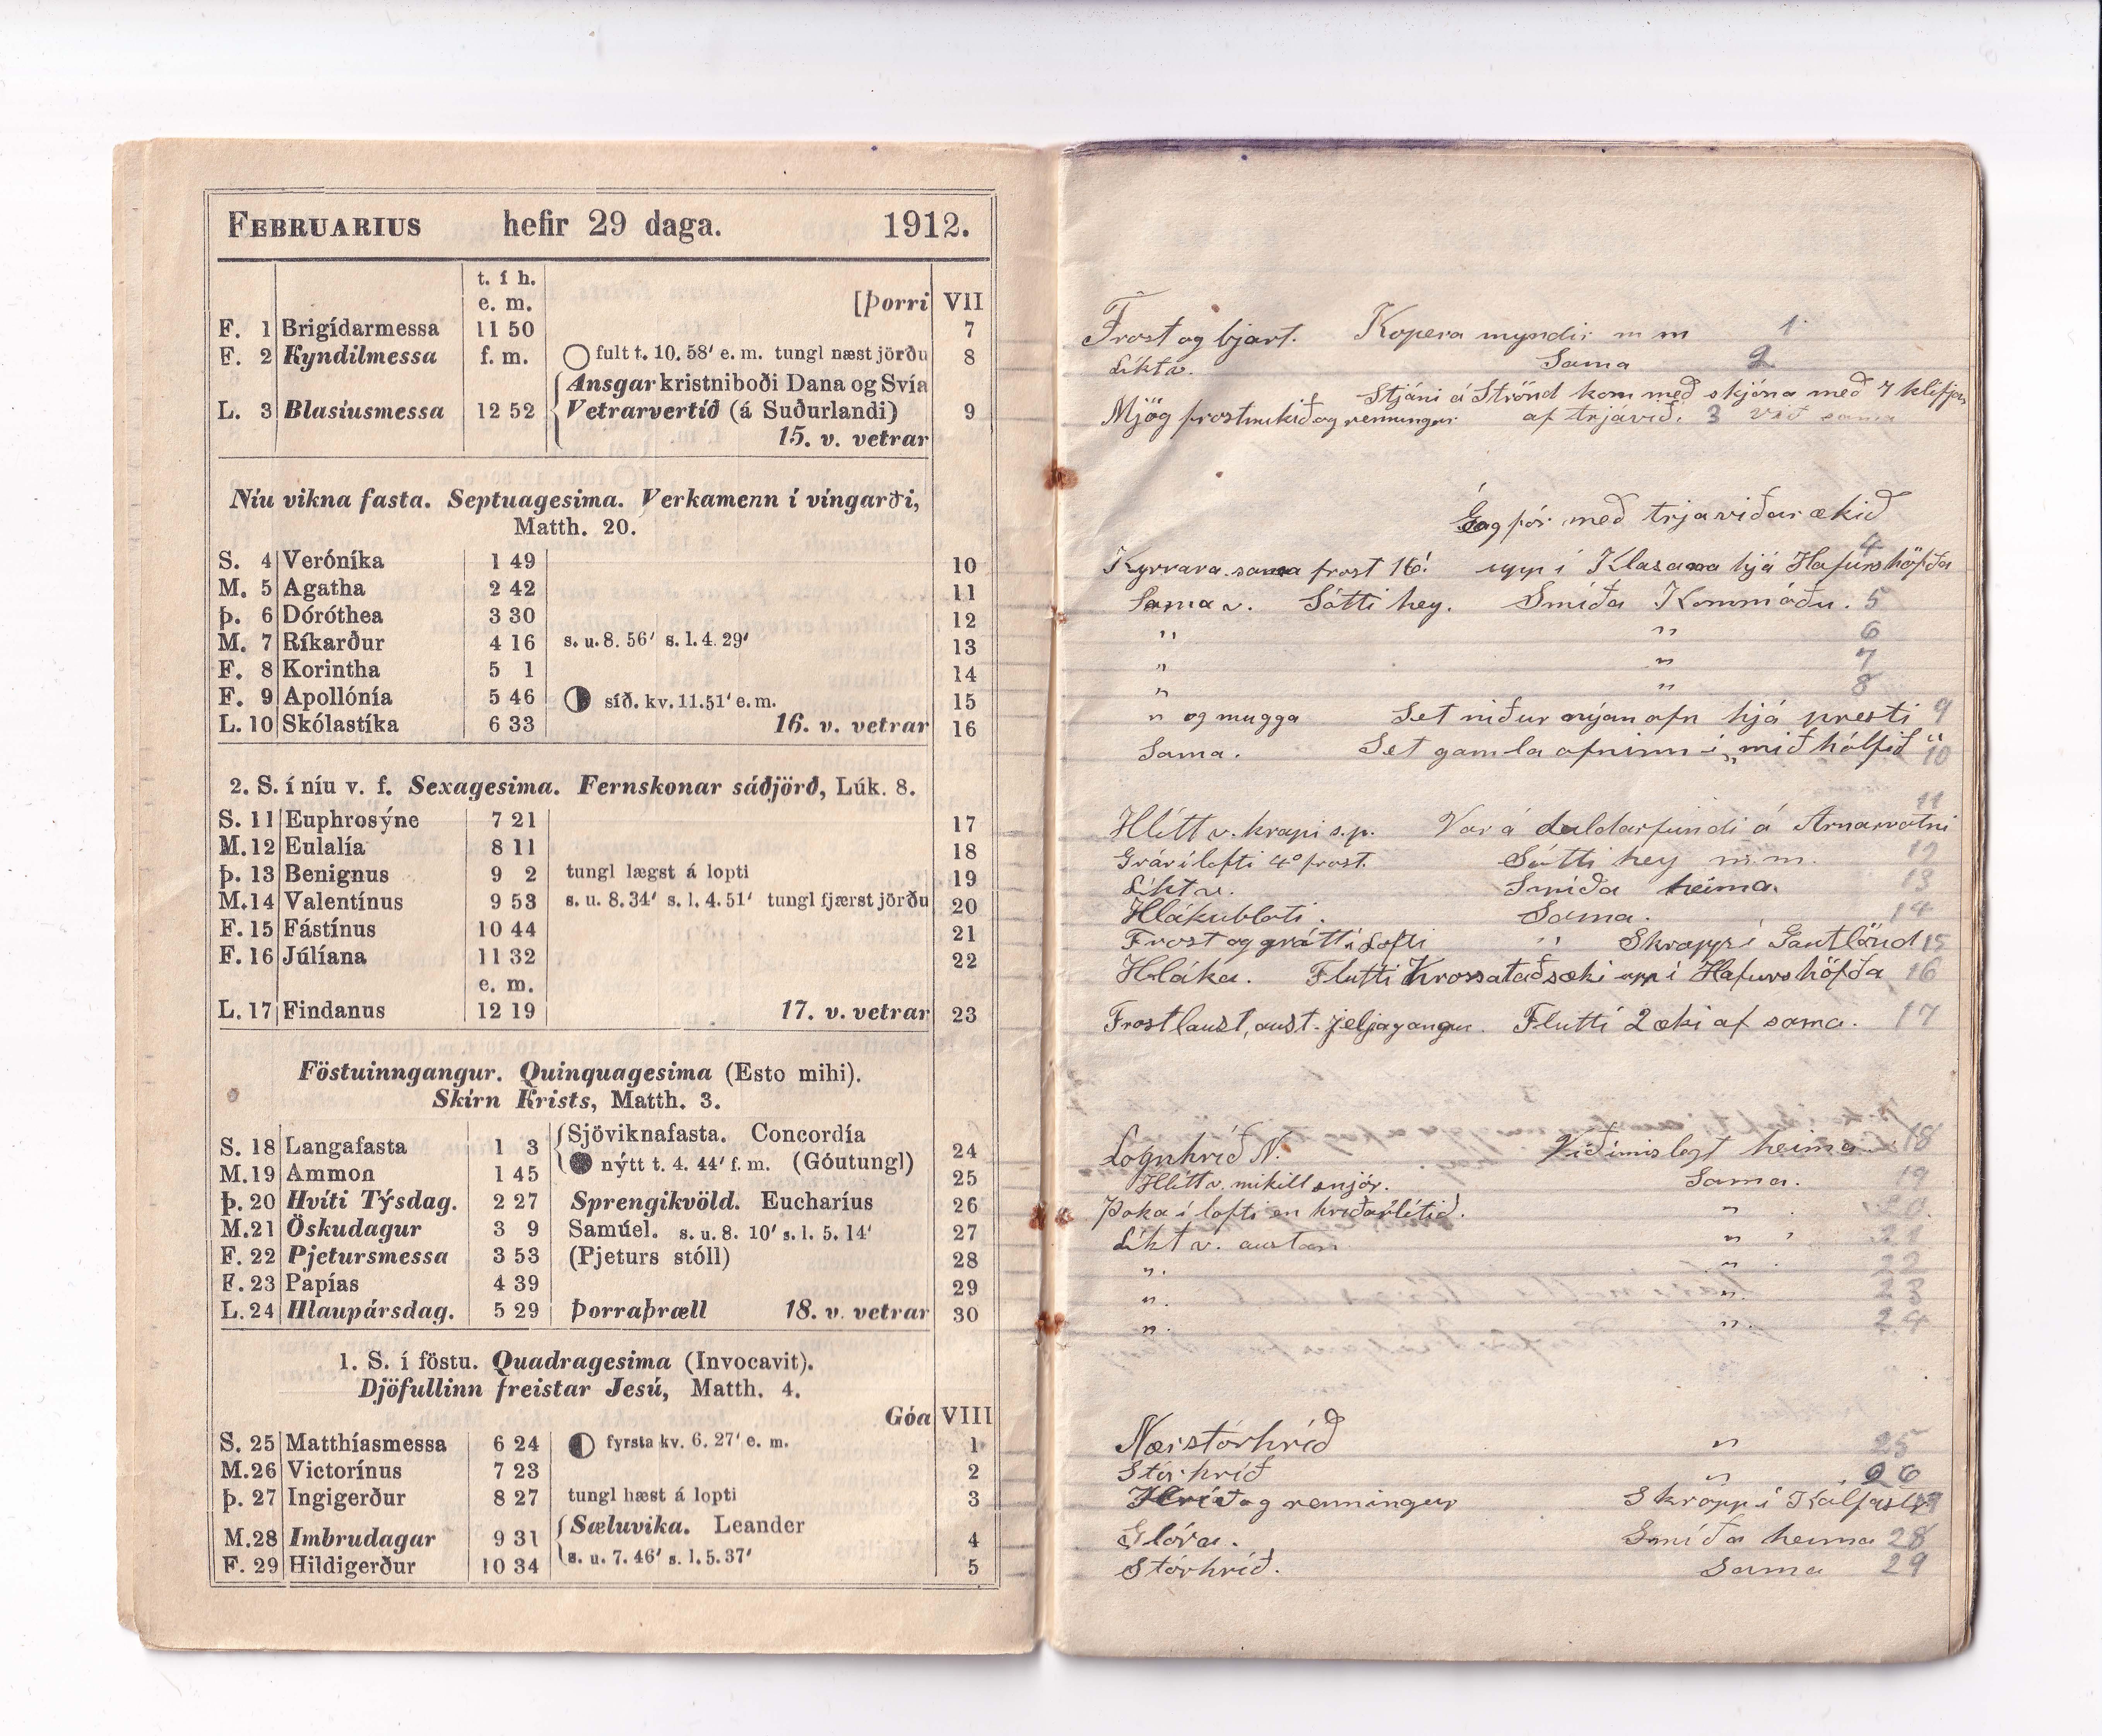 FEBRUARIUS hefir 29 daga. 1912.
t. í h.
e. m. [Þorri VII
F. 1 Brigídarmessa 11 50 7
F. 2 Kyndilmessa f. m. fult t. 10. 58' e. m. tungl næst jörðu 8
Ansgar kristniboði Dana og Svía
L. 3 Blasíusmessa 12 52 Vetrarvertíð (á Suðurlandi) 9
15. v. vetrar
Níu vikna fasta. Septuagesima. Verkamenn í víngarði,
Matth. 20.
S. 4 Verónika 1 49 10
M. 5 Agatha 2 42 11
Þ. 6 Dóróthea 3 30 12
M. 7 Ríkarður 4 16 s. u. 8. 56' s. l. 4. 29' 13
F. 8 Korintha 5 1 14
F. 9 Apollónía 5 46 síð. kv. 11. 51' e. m. 15
L. 10 Skólastíka 6 33 16. v. vetrar 16
2. S. í níu v. f. Sexagesima. Fernskonar sáðjörð, Lúk. 8.
S. 11 Euphrosýne 7 21 17
M. 12 Eulalía 8 11 18
Þ. 13 Benignus 9 2 tungl lægst á lopti 19
M. 14 Valentínus 9 53 s. u. 8. 34' s. l. 4. 51' tungl fjærst jörðu 20
F. 15 Fástínus 10 44 21
F. 16 Júlíana 11 32 22
e. m.
L. 17 Findanus 12 19 17. v. vetrar 23
Föstuinngangur. Quinquagesima (Esto mihi).
Skírn Krists, Matth. 3.
S. 18 Langafasta 1 3 Sjöviknafasta. Concordía 24
M. 19 Ammon 1 45 nýtt t. 4. 44' f. m. (Góutungl) 25
Þ. 20 Hvíti Týsdag. 2 27 Sprengikvöld. Eucharíus 26
M. 21 Öskudagur 3 9 Samúel. s. u. 8. 10' s. l. 5. 14' 27
F. 22 Pjetursmessa 3 53 (Pjeturs stóll) 28
F. 23 Papías 4 39 29
L. 24 Hlaupársdag. 5 29 Þorraþræll 18. v. vetrar 30
1. S. í föstu. Quadragesima (Invocavit).
Djöfullinn freistar Jesú, Matth. 4.
Góa VIII
S. 25 Matthíasmessa 6 24 fyrsta kv. 6. 27' e. m. 1
M. 26 Victorínus 7 23 2
Þ. 27 Ingigerður 8 27 tungl hæst á lopti 3
M. 28 Imbrudagar 9 31 Sæluvika. Leander 4
F. 29 Hildigerður 10 34 s. u. 7. 46' s. l. 5. 37' 5
Frost og bjart. Kopera myndir m m 1
Líkt v. Sama 2
Stjáni á Strönd kom með skjóna með 7 klifjar
Mjög frostmikið og renningur af trjávið. 3 við sama
Eg fór með trjaviðarækið
4
Kyrrara sama frost 16! upp í Klasana hjá Hafurshöfða
Sama v. Sótti hey. Smíða Kommóðu. 5
" " 6
" " 7
" " 8
" og mugga Set niður nýjan ofn hjá presti 9
Sama. Set gamla ofninn í „mið hólfið" 10
11
Hlítt v. krapi s.p. Var á duldarfundi á Arnarvatni
Grár í lofti 4° frost. Sótti hey m.m. 12
Líkt v. Smíða heima. 13
Hlákubloti. Sama. 14
Frost og grátt í Lofti " Skrapp í Gautlönd 15
Hláka. Flutti Krossataðsæki upp í Hafurshöfða 16
Frostlaust, aust. jeljagangur. Flutti 2 æki af sama. 17
Lognhríð N. Við ímislegt heima. 18
Hlítt v. mikill snjór. Sama. 19
Þoka í lofti en hríðarlítið. " 20
Líkt v. austan " 21
" " 22
" " 23
" " 24
Nærstórhríð " 25
Stórhríð " 26
Hríð og renningur Skrapp í Kálfastr 27
Glóra. Smíða heima 28
Stórhríð. Sama 29